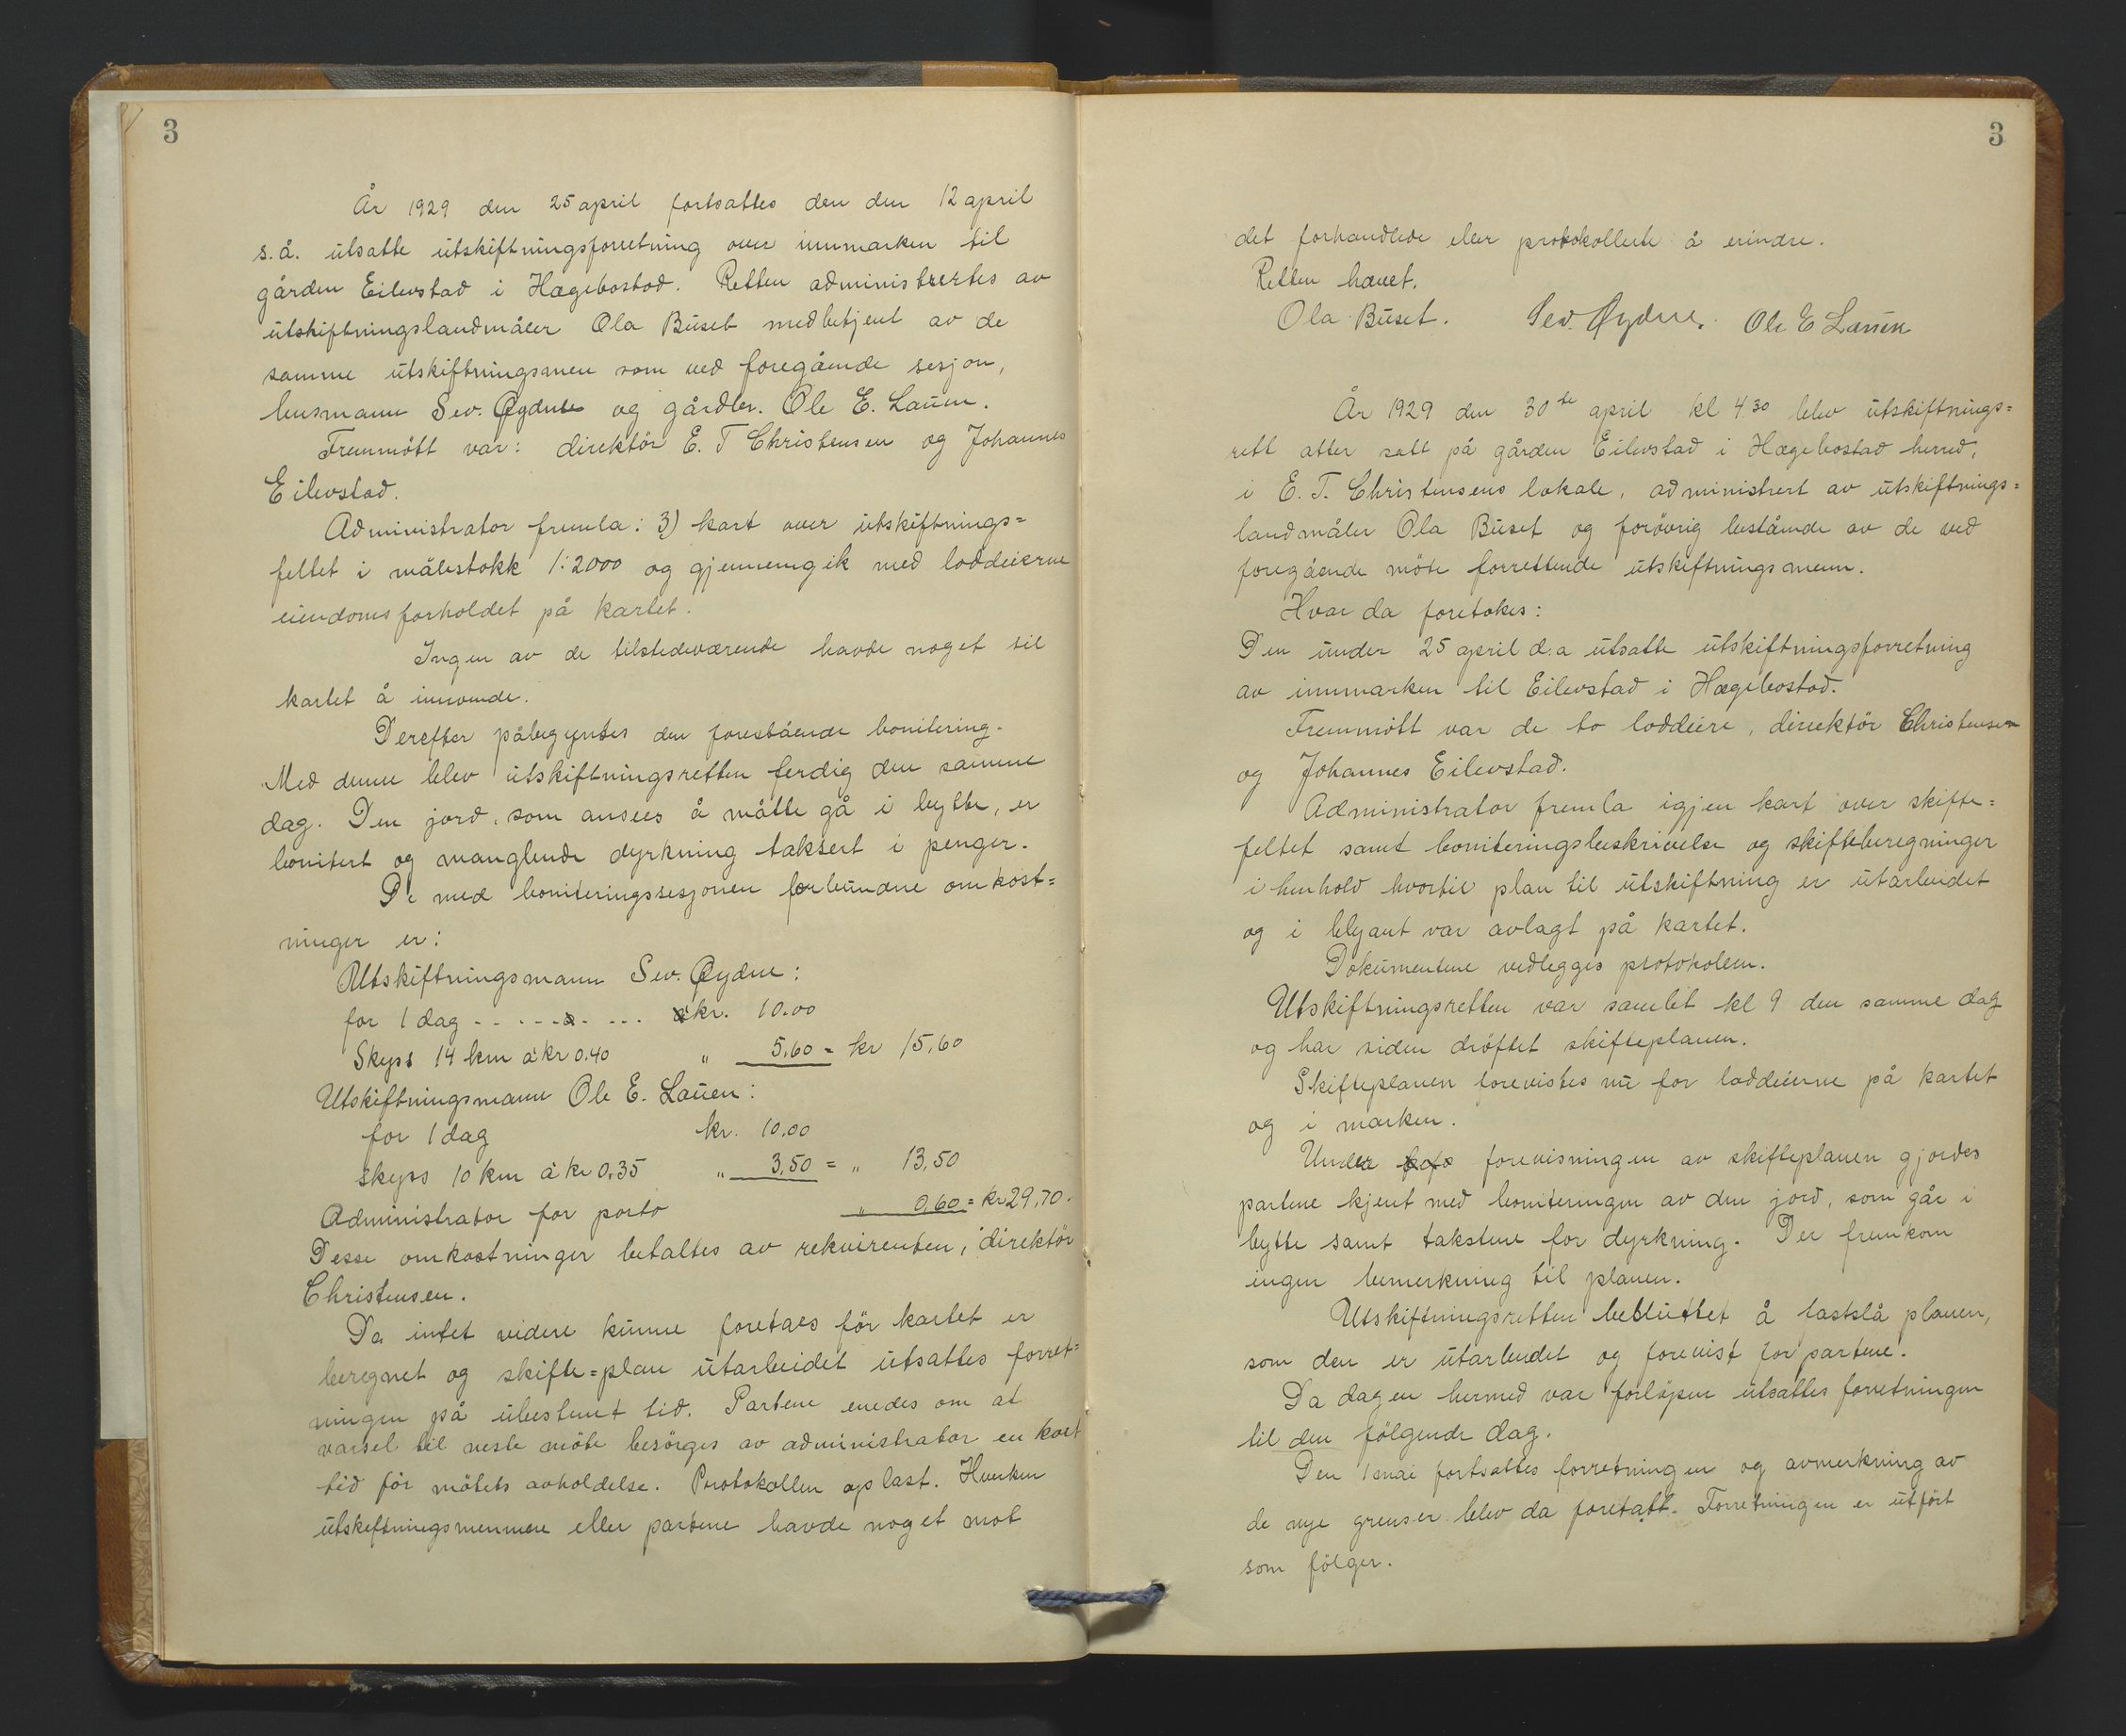 3
År 1929 den 25 april fortsattes den den 12 april
s.å. utsatte utskiftningsforretning over innmarken til
gården Eilevstad i Hægebostad. Retten administrertes av
utskiftningslandmåler Ola Buset medbetjent av de
samme utskiftningsmen som ved foregående sesjon,
lensmann Sev. Øydne og gårdbr. Ole E. Lauen.
Fremmött var: direktör E. T Christensen og Johannes
Eilevstad.
Administrator fremla: 3) kart over utskiftnings=
feltet i målestokk 1:2000 og gjennemgik med loddeierne
eiendomsforholdet på kartet.
Ingen av de tilstedeværende havde noget til
kartet å innvende.
Derefter påbegyntes den forestående bonitering.
Med denne blev utskiftningsretten ferdig den samme
dag. Den jord, som ansees å måtte gå i bytte, er
bonitert og manglende dyrkning taksert i penger.
De med boniteringssesjonen forbundne omkost=
ninger er:
Utskiftningsmann Sev. Øydne:
for 1 dag - - - - - - ... kr. 10.00
Skyss 14 km à kr 0.40 " 5,60 = kr 15,60
Utskiftningsmann Ole E. Lauen:
for 1 dag kr. 10.00
skyss 10 km à kr 0.35 " 3,50 = " 13,50
Administrator for porto " 0,60 = kr 29,70.
Desse omkostninger betaltes av rekvirenten, direktör
Christensen.
Da intet videre kunne foretaes för kartet er
beregnet og skifte=plan utarbeidet utsattes forret=
ningen på ubestemt tid. Partene enedes om at
varsel til neste möte besörges av administrator en kort
tid för mötets avholdelse. Protokollen oplæst. Hverken
utskiftningsmennene eller partene havde noget mot
3
det forhandlede eller protokollerte å erindre.
Retten hævet.
Ola Buset. Sev. Øydne. Ole E Lauen
År 1929 den 30te april kl 4 30 blev utskiftnings=
rett atter satt på gården Eilevstad i Hægebostad herred,
i E. T. Christensens lokale, administrert av utskiftnings=
landmåler Ola Buset og forövrig bestående av de ved
foregående möte forrettende utskiftningsmenn.
Hvar da foretokes:
Den under 25 april d.a utsatte utskiftningsforretning
av innmarken til Eilevstad i Hægebostad.
Fremmött var de to loddeiere, direktör Christensen
og Johannes Eilevstad.
Administrator fremla igjen kart over skifte=
feltet samt boniteringsbeskrivelse og skifteberegninger
i henhold hvortil plan til utskiftning er utarbeidet
og i blyant var avlagt på kartet.
Dokumentene vedlegges protokollen.
Utskiftningsretten var samlet kl 9 den samme dag
og har siden dröftet skifteplanen.
Skifteplanen forevistes nu for loddeierne på kartet
og i marken.
Under forevisningen av skifteplanen gjordes
partene kjent med boniteringen av den jord, som går i
bytte samt takstene for dyrkning. Der fremkom
ingen bemerkning til planen.
Utskiftningsretten besluttet å fastslå planen,
som den er utarbeidet og forevist for partene.
Da dagen hermed var forlöpen utsattes forretningen
til den fölgende dag.
Den 1 mai fortsattes forretningen og avmerkning av
de nye grenser blev da foretatt. Forretningen er utfört
som fölger.